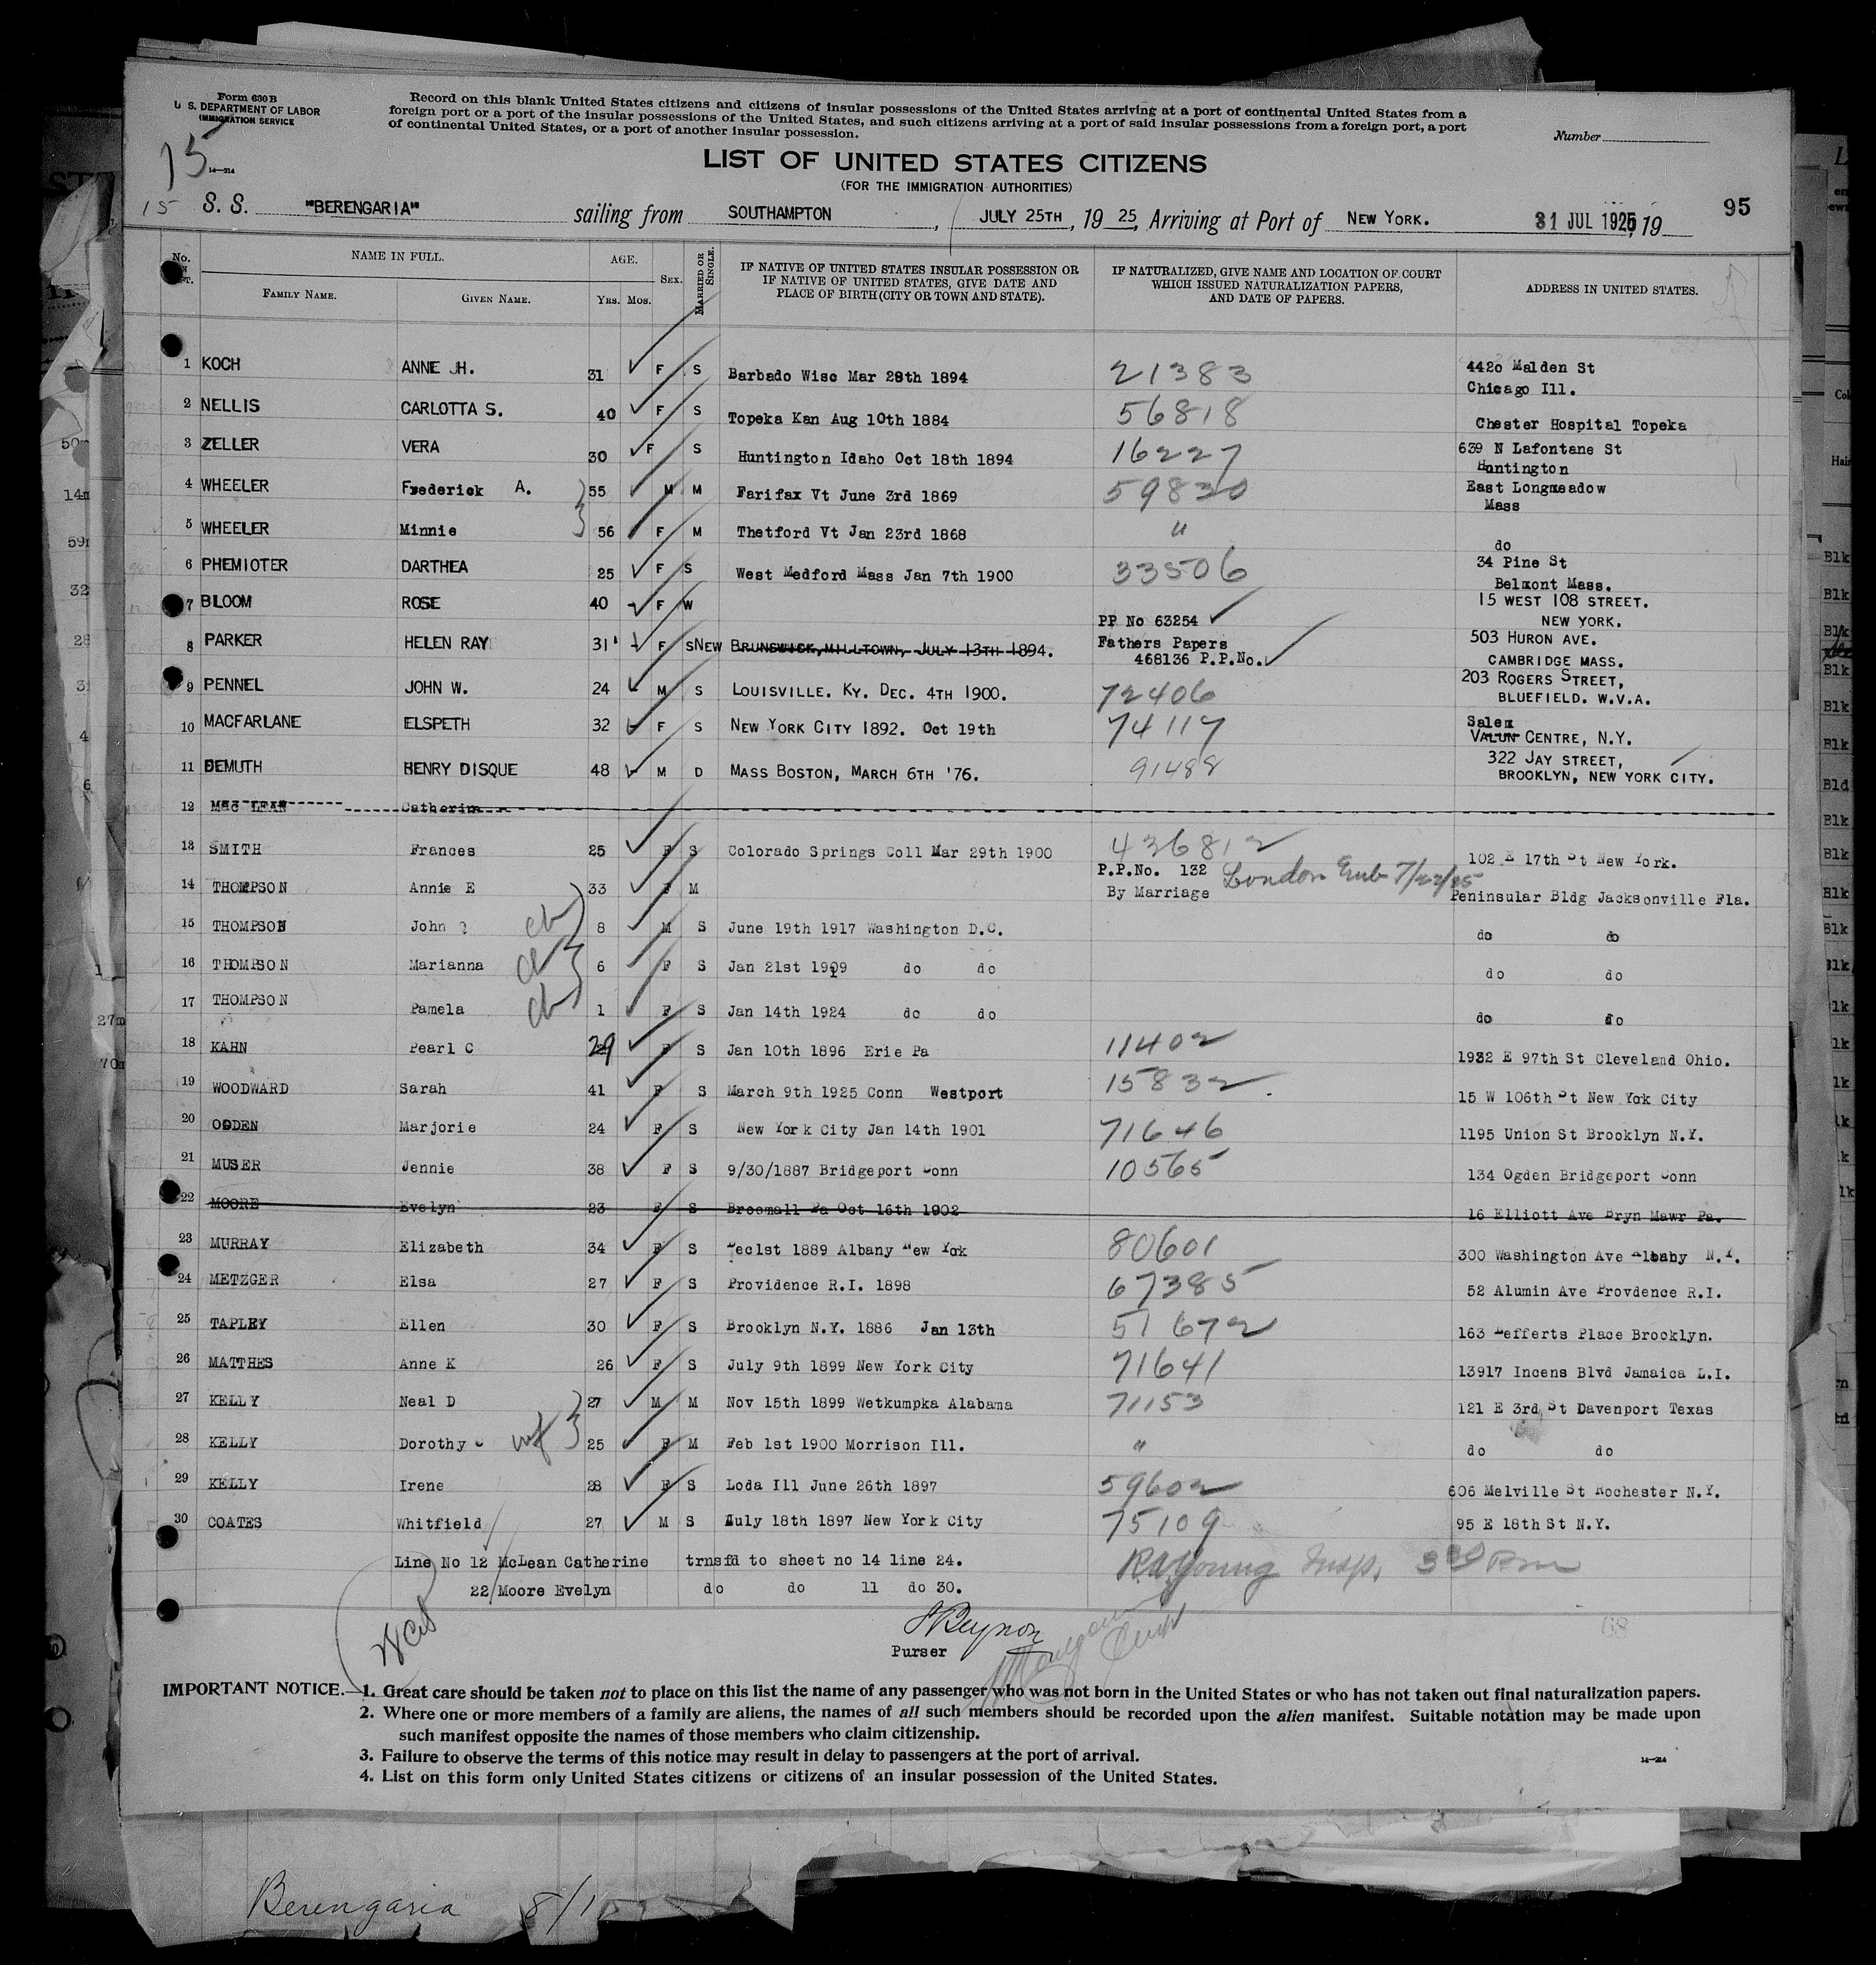 Form 630 B
U. S. DEPARTMENT OF LABOR
IMMIGRATION SERVICE
Record on this blank United States citizens and citizens of insular possessions of the United States arriving at a port of continental United States from a
foreign port or a port of the insular possessions of the United States, and such citizens arriving at a port of said insular possessions from a foreign port, a port
of continental United States, or a port of another insular possession.
Number
15
14—214
LIST OF UNITED STATES CITIZENS
(FOR THE IMMIGRATION AUTHORITIES)
95
15 S. S. "BERENGARIA" sailing from SOUTHAMPTON, JULY 25TH, 19 25, Arriving at Port of NEW YORK. 31 JUL 1925, 19
No. NAME IN FULL. AGE. Sex. MARRIED OR SINGLE. IF NATIVE OF UNITED STATES INSULAR POSSESSION OR IF NATIVE OF UNITED STATES, GIVE DATE AND PLACE OF BIRTH (CITY OR TOWN AND STATE). IF NATURALIZED, GIVE NAME AND LOCATION OF COURT WHICH ISSUED NATURALIZATION PAPERS, AND DATE OF PAPERS. ADDRESS IN UNITED STATES.
FAMILY NAME. GIVEN NAME. YRS. MOS.
1 KOCH ANNE H. 31 F S Barbado Wisc Mar 28th 1894 21383 4420 Malden St
Chicago Ill.
2 NELLIS CARLOTTA S. 40 F S Topeka Kan Aug 10th 1884 56818 Chester Hospital Topeka
3 ZELLER VERA 30 F S Huntington Idaho Oct 18th 1894 16227 639 N Lafontane St
Huntington
4 WHEELER Frederick A. 55 M M Farifax Vt June 3rd 1869 59830 East Longmeadow
Mass
5 WHEELER Minnie 56 F M Thetford Vt Jan 23rd 1868 " do
6 PHEMIOTER DARTHEA 25 F S West Medford Mass Jan 7th 1900 33506 34 Pine St
Belmont Mass.
7 BLOOM ROSE 40 F W PP No 63254 15 WEST 108 STREET.
NEW YORK.
8 PARKER HELEN RAY 31 F S NEW BRUNSWICK, MILLTOWN, JULY 13TH 1894. Fathers Papers 503 HURON AVE.
468136 P.P.No. CAMBRIDGE MASS.
9 PENNEL JOHN W. 24 M S LOUISVILLE. KY. DEC. 4TH 1900. 72406 203 ROGERS STREET,
BLUEFIELD. W.V.A.
10 MACFARLANE ELSPETH 32 F S NEW YORK CITY 1892. Oct 19th 74117 Salem
VALUN CENTRE, N.Y.
11 DEMUTH HENRY DISQUE 48 M D MASS BOSTON, MARCH 6TH '76. 91488 322 JAY STREET,
BROOKLYN, NEW YORK CITY.
12 MAC LEAN Catherine
13 SMITH Frances 25 F S Colorado Springs Coll Mar 29th 1900 436812 102 E 17th St New York.
14 THOMPSON Annie E 33 F M P.P.No. 132 London Emb 7/22/25
By Marriage Peninsular Bldg Jacksonville Fla.
15 THOMPSON John 8 M S June 19th 1917 Washington D.C. do do
16 THOMPSON Marianna 6 F S Jan 21st 1909 do do do do
17 THOMPSON Pamela 1 F S Jan 14th 1924 do do do do
18 KAHN Pearl C 29 F S Jan 10th 1896 Erie Pa 11402 1932 E 97th St Cleveland Ohio.
19 WOODWARD Sarah 41 F S March 9th 1925 Conn Westport 15832 15 W 106th St New Yok City
20 OGDEN Marjorie 24 F S New York City Jan 14th 1901 71646 1195 Union St Brooklyn N.Y.
21 MUSER Jennie 38 F S 9/30/1887 Bridgeport Conn 10565 134 Ogden Bridgeport Conn
22 MOORE Evelyn 23 F S Broomall Pa Oct 16th 1902 16 Elliott Ave Bryn Mawr Pa.
23 MURRAY Elizabeth 34 F S Dec1st 1889 Albany New Yok 80601 300 Washington Ave Albany N.Y.
24 METZGER Elsa 27 F S Providence R.I. 1898 67385 52 Alumin Ave Provdence R.I.
25 TAPLEY Ellen 30 F S Brooklyn N.Y. 1886 Jan 13th 51672 163 Lefferts Place Brooklyn.
26 MATTHES Anne K 26 F S July 9th 1899 New York City 71641 13917 Incens Blvd Jamaica L.I.
27 KELLY Neal D 27 M M Nov 15th 1899 Wetkumpka Alabama 71153 121 E 3rd St Davenport Texas
28 KELLY Dorothy C wf 25 F M Feb 1st 1900 Morrison Ill. " do do
29 KELLY Irene 28 F S Loda Ill June 26th 1897 59602 606 Melville St Rochester N.Y.
30 COATES Whitfield 27 M S July 18th 1897 New York City 75109 95 E 18th St N.Y.
Line No 12 McLean Catherine trnsfd to sheet no 14 line 24.
22 Moore Evelyn do do 11 do 30.
R.W. Young Insp.
Purser
IMPORTANT NOTICE.—1. Great care should be taken not to place on this list the name of any passenger who was not born in the United States or who has not taken out final naturalization papers.
2. Where one or more members of a family are aliens, the names of all such members should be recorded upon the alien manifest. Suitable notation may be made upon
such manifest opposite the names of those members who claim citizenship.
3. Failure to observe the terms of this notice may result in delay to passengers at the port of arrival.
4. List on this form only United States citizens or citizens of an insular possession of the United States.
14—214
Berengaria 8/1